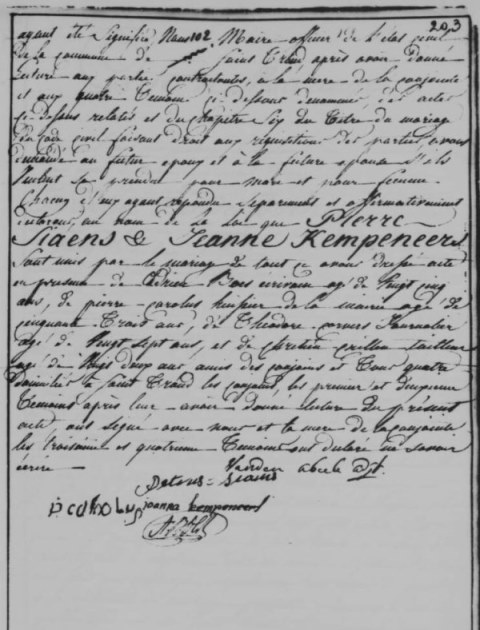 203
ayant été signifié Nous 102 Maire officier de l'état civil
de la commune de Saint Trond après avoir donné
lecture aux parties contractantes, a la mere de la conjointe
et aux quatre Temoins ci dessous denommés, des actes
ci dessus relatés et du chapitre six du titre du mariage
du Code civil faisant droit aux requisitions des parties avons
demandé au futur epoux et à la future epouse s'ils
veulent se prendre pour mari et pour femme
Chacun d'eux ayant repondu separement et affirmativement
declarons, au nom de la loi que Pierre
Siaens & Jeanne Kempeneers
sont unis par le mariage de tout ce avons dressé acte
en presence de écrivain agé de vingt cinq
ans, de pierre carolus huissier de la mairie agé de
cinquante Trois ans, de Theodore Journalier
agé de vingt sept ans, et de tailleur
agé de vingt deux ans amis des conjoints et Tous quatre
Domiciliés à Saint Trond les conjoints, les premier et deuxieme
Temoins après leur avoir donné lecture du présent
acte ont signé avec nous et la mere de la conjointe
les troisieme et quatrieme Temoins ont declaré ne savoir
écrire
Siaens
p carolus joanna kempeneers